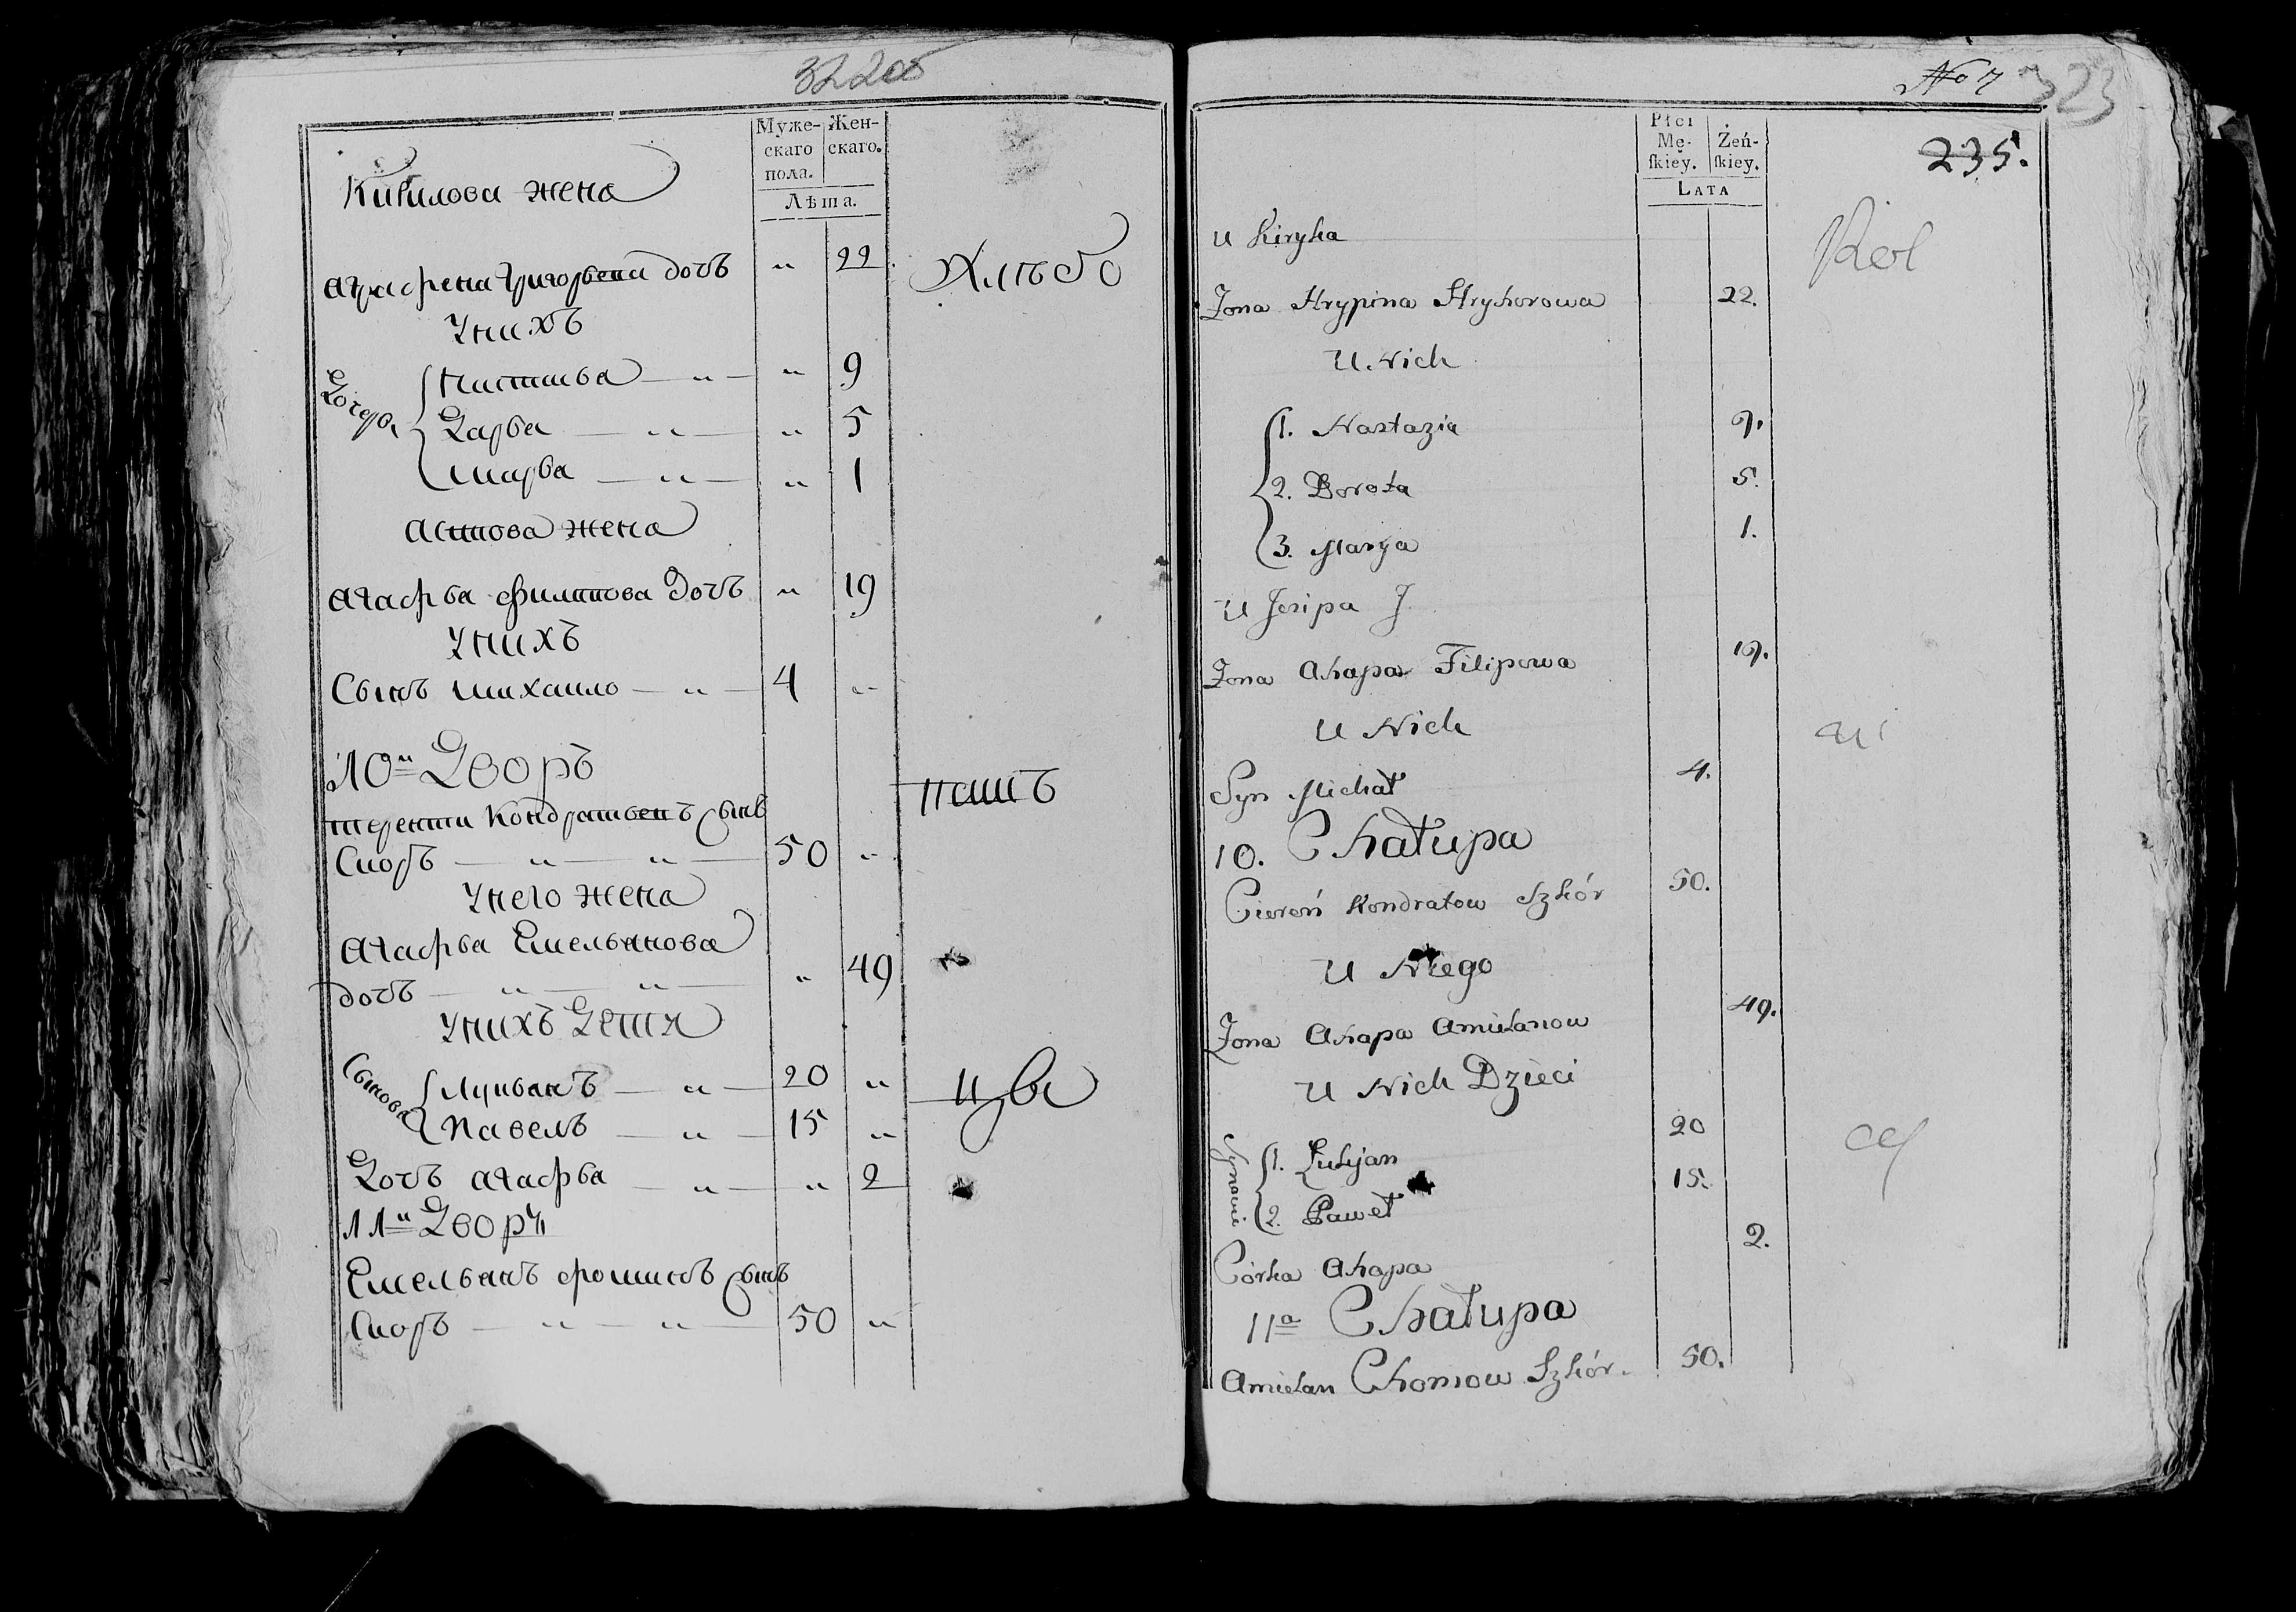 322об
Муже- Жен-
скаго скаго.
пола.
Лѣта.
Кирилова жена
Аграфена Григорьева дочь " 22
Хлѣбо
У нихъ
Дочери
Настасья — " — " 9
Дарья — " — " 5
Марья — " — " 1
Асипова жена
Агафья Филипова дочь " 19
У нихъ
Сынъ Михайло — " — 4 "
10й Дворъ
пашъ
Терентий Кондратьевъ сынъ
Скоръ — " — " — 50 "
У него жена
Агафья Емельянова
дочь — " — " — " 49
У нихъ Дети
Сынова
Лукьянъ — " — 20 "
Павелъ — " — 15 "
Дочь Агафья — " — " 2
11й Дворъ
Емельянъ Фоминъ сынъ
Скоръ — " — " — 50 "
No 7 323
235.
Płci
Mę- Żeń-
ſkiey. ſkiey.
LATA
U Kiryła
Żona Hrypina Hryhorowa 22.
U Nich
1. Nastazia 9.
2. Dorota 5.
3. Marya 1.
U Josipa
Żona Ahapa Filipowa 19.
U Nich
Syn Michał 4.
10. Chałupa
Cieroń Kondratow Szkór 50.
U Niego
Żona Ahapa Amielanow 49.
U Nich Dzieci
Synowie
1. Łukjan 20
2. Paweł 15.
Córka Ahapa 2.
11a Chałupa
Amielan Chomow Szkór. 50.